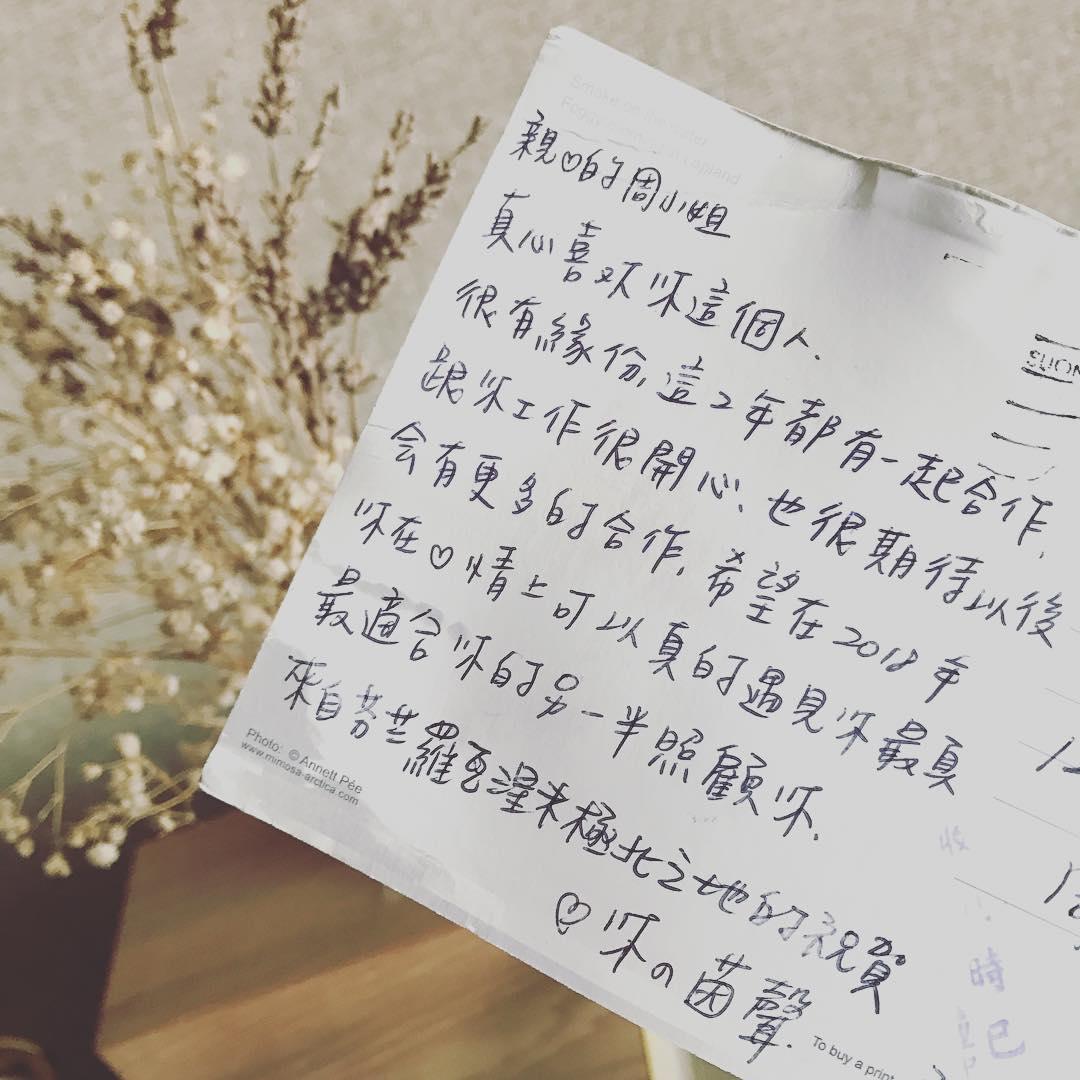 Smoke on the water
Foggy
Lapland
親♡的周小姐
真心喜欢你這個人.
很有緣份,這2年都有一起合作,
跟你工作很開心,也很期待以後
会有更多的合作,希望在2018年
你在♡情上可以真的遇見你最真
最適合你的另一半照顧你.
來自芬兰羅瓦涅米極北之地的祝賀
♡你の茵聲.
Photo: © Annett Pée
www.mimosa-arctica.com
To buy a print
SUOM
收
時
已